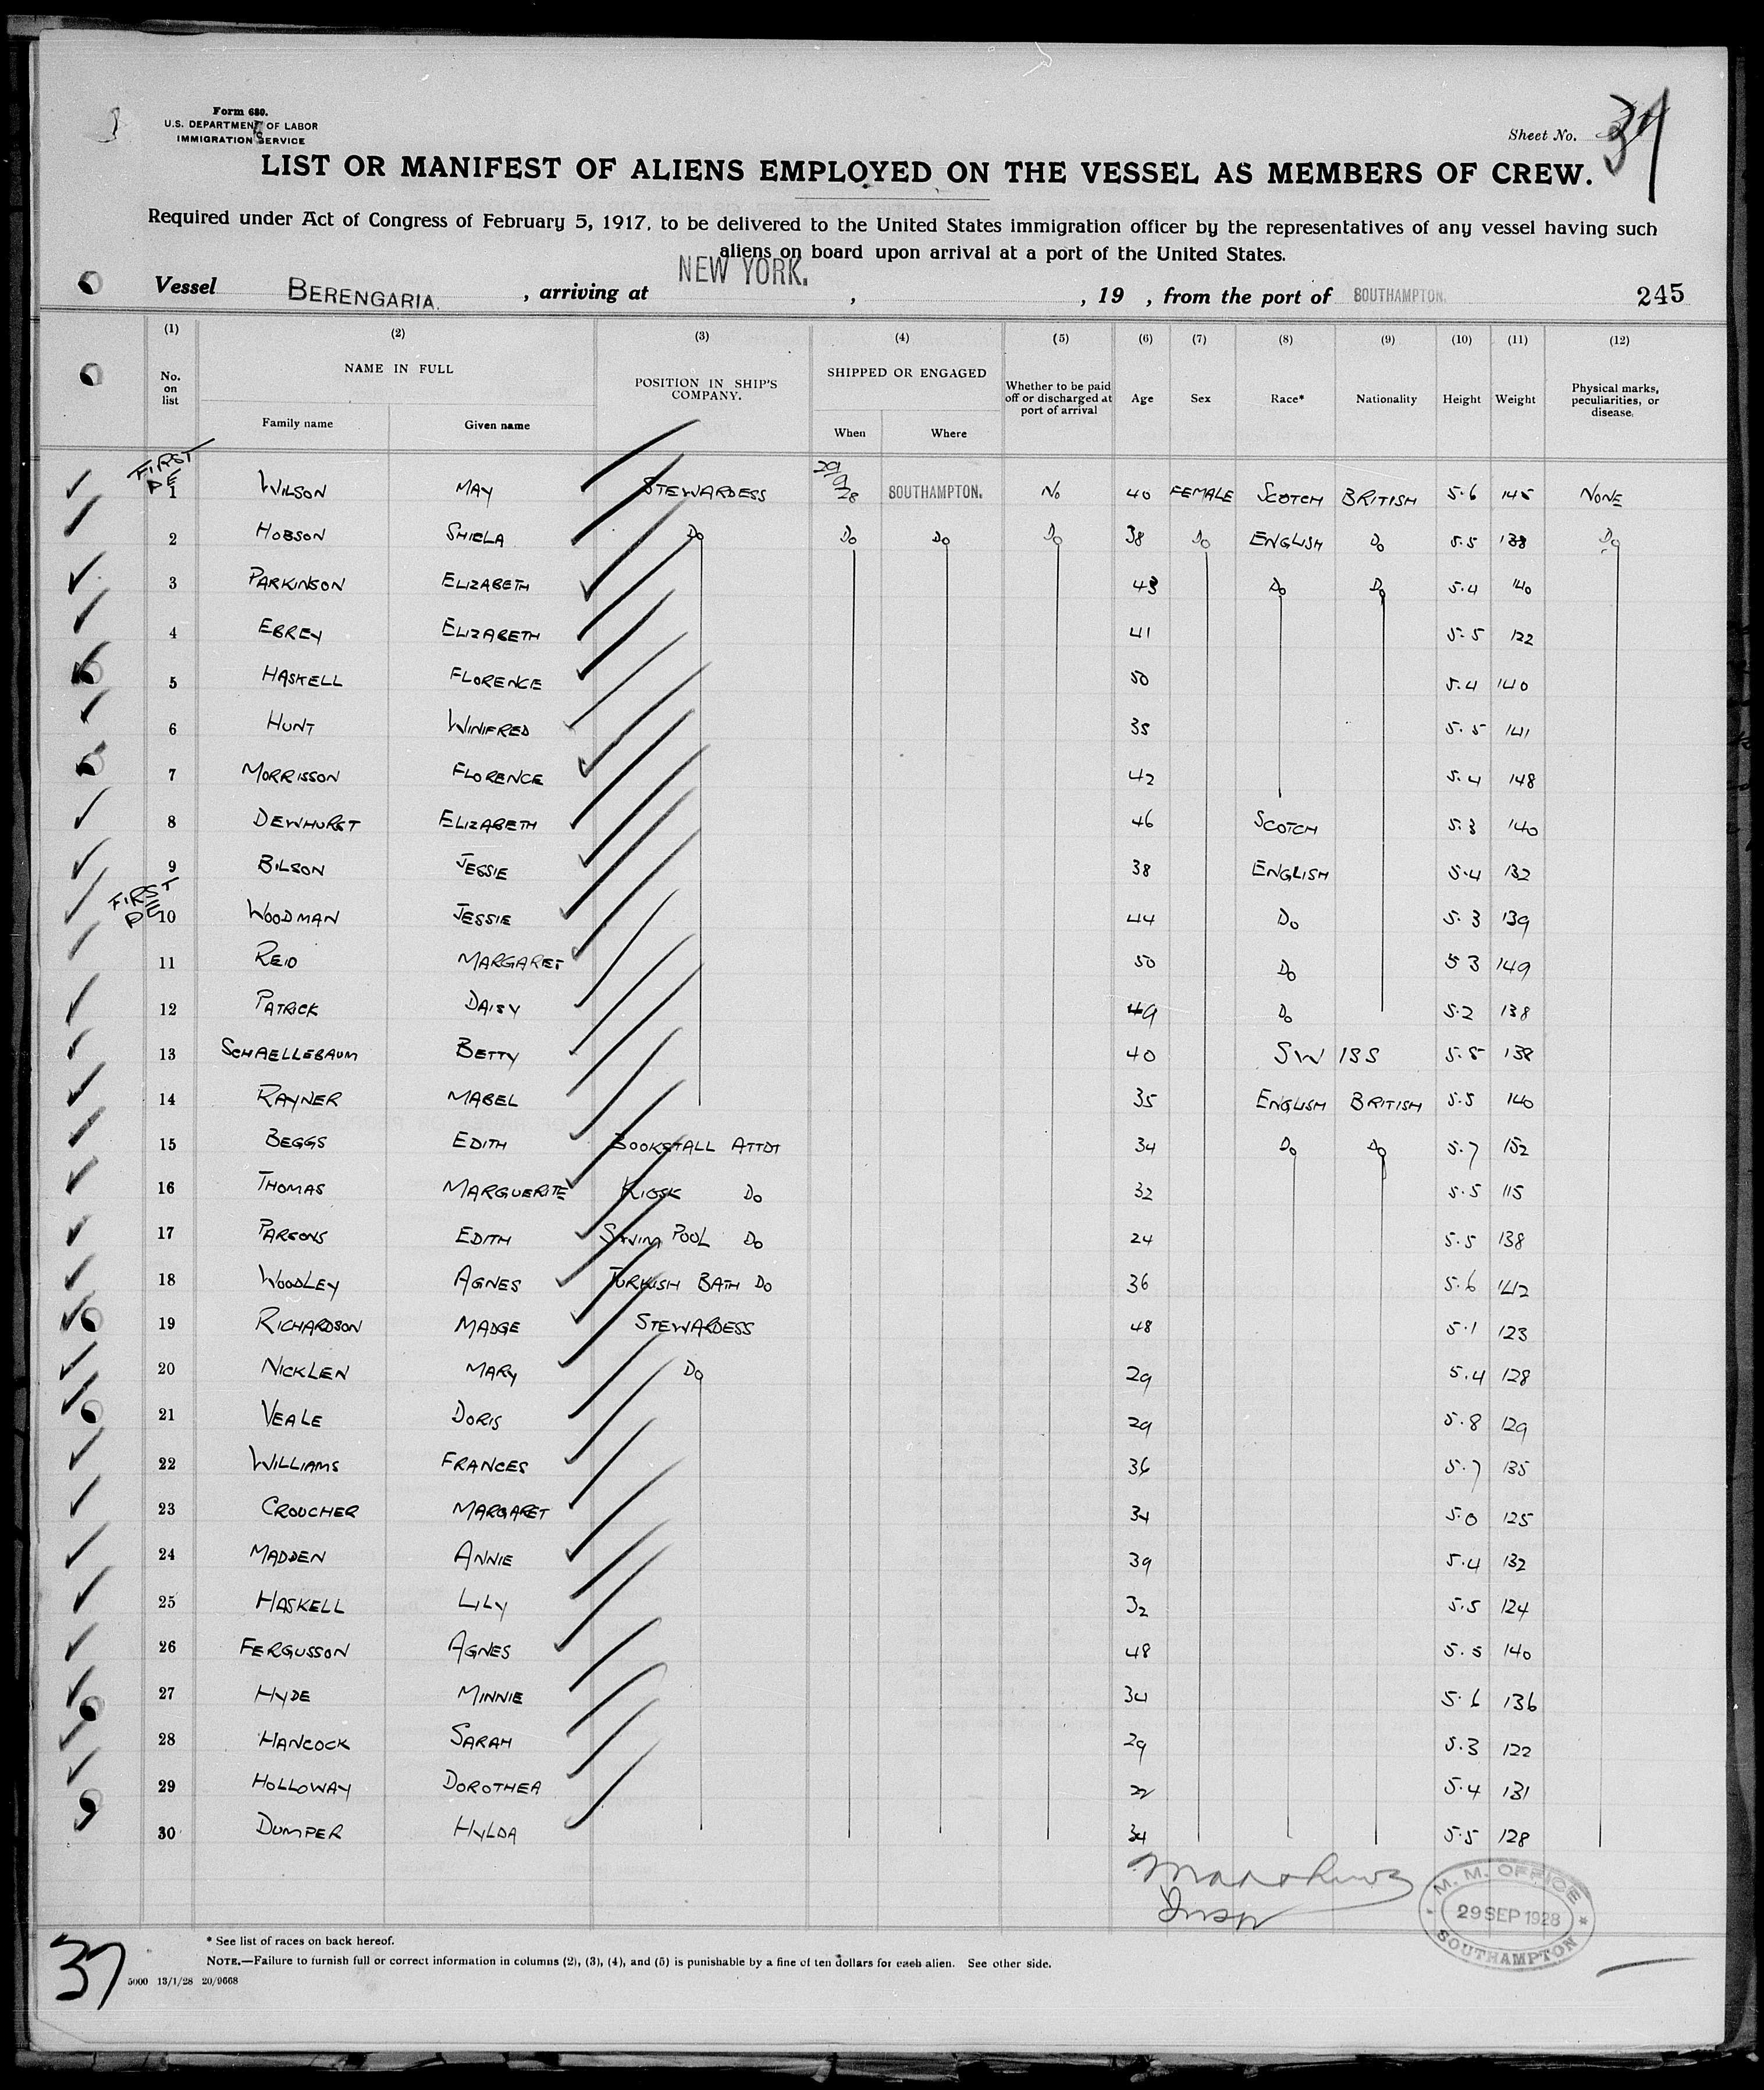 Form 680.
U.S. DEPARTMENT OF LABOR
IMMIGRATION SERVICE
Sheet No. 37
LIST OR MANIFEST OF ALIENS EMPLOYED ON THE VESSEL AS MEMBERS OF CREW.
Required under Act of Congress of February 5, 1917, to be delivered to the United States immigration officer by the representatives of any vessel having such
aliens on board upon arrival at a port of the United States.
Vessel BERENGARIA. , arriving at NEW YORK. , , 19 , from the port of SOUTHAMPTON. 245
(1) (2) (3) (4) (5) (6) (7) (8) (9) (10) (11) (12)
No. on list NAME IN FULL Family name Given name POSITION IN SHIP'S COMPANY. SHIPPED OR ENGAGED When Where Whether to be paid off or discharged at port of arrival Age Sex Race* Nationality Height Weight Physical marks, peculiarities, or disease.
FIRST
1 WILSON MAY STEWARDESS 29/9/28 SOUTHAMPTON. No 40 FEMALE SCOTCH BRITISH 5.6 145 NONE
2 HOBSON SHIELA Do Do Do Do 38 Do ENGLISH Do 5.5 138 Do
3 PARKINSON ELIZABETH 43 Do Do 5.4 140
4 EBREY ELIZABETH 41 5.5 122
5 HASKELL FLORENCE 50 5.4 140
6 HUNT WINIFRED 35 5.5 141
7 MORRISSON FLORENCE 42 5.4 148
8 DEWHURST ELIZABETH 46 SCOTCH 5.3 140
9 BILSON JESSIE 38 ENGLISH 5.4 132
FIRST
10 WOODMAN JESSIE 44 Do 5.3 139
11 REID MARGARET 50 Do 5 3 149
12 PATRICK DAISY 49 Do 5.2 138
13 SCHAELLEBAUM BETTY 40 SWISS 5.5 138
14 RAYNER MABEL 35 ENGLISH BRITISH 5.5 140
15 BEGGS EDITH BOOKSTALL ATTDT 34 Do Do 5.7 152
16 THOMAS MARGUERITE KIOSK Do 32 5.5 115
17 PARSONS EDITH SWIM POOL Do 24 5.5 138
18 WOODLEY AGNES TURKISH BATH Do 36 5.6 142
19 RICHARDSON MADGE STEWARDESS 48 5.1 123
20 NICKLEN MARY Do 29 5.4 128
21 VEALE DORIS 29 5.8 129
22 WILLIAMS FRANCES 36 5.7 135
23 CROUCHER MARGARET 34 5.0 125
24 MADDEN ANNIE 39 5.4 132
25 HASKELL LILY 32 5.5 124
26 FERGUSSON AGNES 48 5.5 140
27 HYDE MINNIE 34 5.6 136
28 HANCOCK SARAH 29 5.3 122
29 HOLLOWAY DOROTHEA 22 5.4 131
30 DUMPER HYLDA 34 5.5 128
M. M. OFFICE
29 SEP 1928
SOUTHAMPTON
* See list of races on back hereof.
NOTE.—Failure to furnish full or correct information in columns (2), (3), (4), and (5) is punishable by a fine of ten dollars for each alien. See other side.
37
5000 13/1/28 20/9668